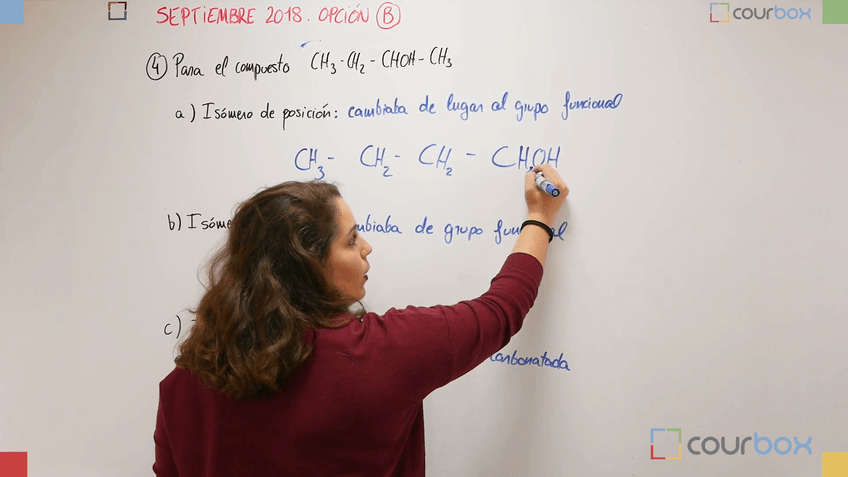 SEPTIEMBRE 2018. OPCIÓN B
courbox
4 Para el compuesto CH3-CH2-CHOH-CH3
a) Isómero de posición: cambiaba de lugar al grupo funcional
CH3- CH2- CH2 - CH2OH
b) de grupo
c)
carbonatada
courbox